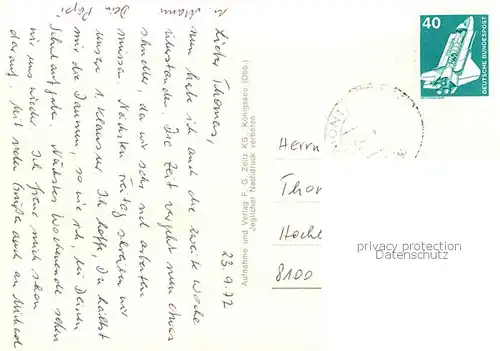 23.9.77
Lieber Thomas,
nun habe ich auch die zweite Woche
überstanden. Die Zeit vergeht nun etwas
schneller, da wir sehr viel arbeiten
müssen. Nächsten Freitag schreiben wir
unsere 1. Klausur. Ich hoffe, Du hältst
mir die Daumen, so wie ich, in Deinen
Schulaufgaben. Nächstes Wochenende sehen
wir uns wieder. Ich freue mich schon
darauf. Mit vielen Grüßen auch an Michael
u. Mami
Dein Papi
Aufnahme und Verlag F. G. Zeitz KG., Königssee (Obb.)
Jeglicher Nachdruck verboten
40
DEUTSCHE BUNDESPOST
Herrn
Thom
8100
privacy protection
Datenschutz